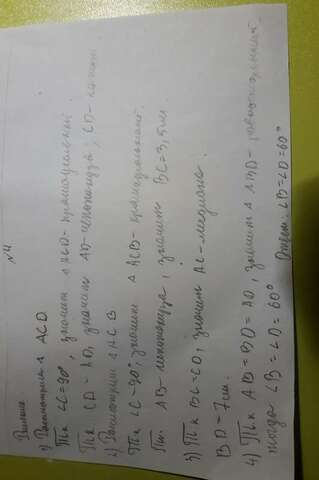 №4
Решение
1) Рассмотрим △ ACD
Тк ∠C=90°, значит △ ACD- прямоугольный
Тк CD - AD, значит AD-гипотенуза, CD- катет
2) Рассмотрим △ ACB
Тк ∠C-90°, значит △ ACB- прямоугольный.
Тк. AB-гипотенуза, значит BC=3,5см.
3) Тк BC=CD, значит AC-медиана.
BD-7см.
4) Тк AB=BD=AD, значит △ ABD-
тогда ∠B=∠D=60° Ответ: ∠B=∠D=60°